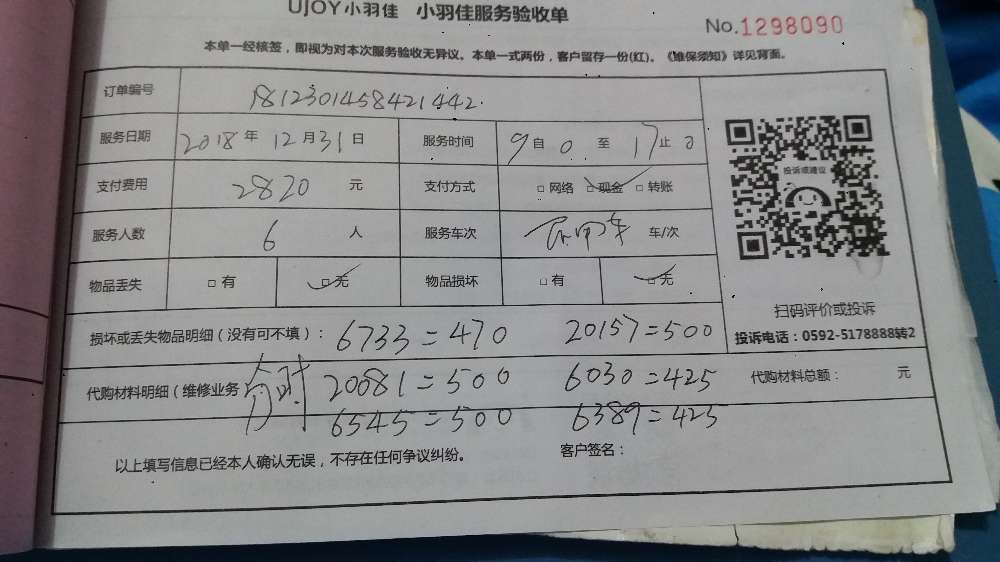 UJOY小羽佳 小羽佳服务验收单
No.1298090
本单一经核签，即视为对本次服务验收无异议。本单一式两份，客户留存一份(红)。《维保须知》详见背面。
订单编号 1812301458421442
服务日期 2018年12月31日 服务时间 9自0至17止0
支付费用 2820元 支付方式 □网络 □现金 □转账
服务人数 6人 服务车次 车/次
投诉或建议
物品丢失 □有 □无 物品损坏 □有 □无
扫码评价或投诉
投诉电话：0592-5178888转2
损坏或丢失物品明细（没有可不填）： 6733=470 20157=500
代购材料明细（维修业务 20081=500 6030=425 代购材料总额： 元
6545=500 6389=425
以上填写信息已经本人确认无误，不存在任何争议纠纷。 客户签名：